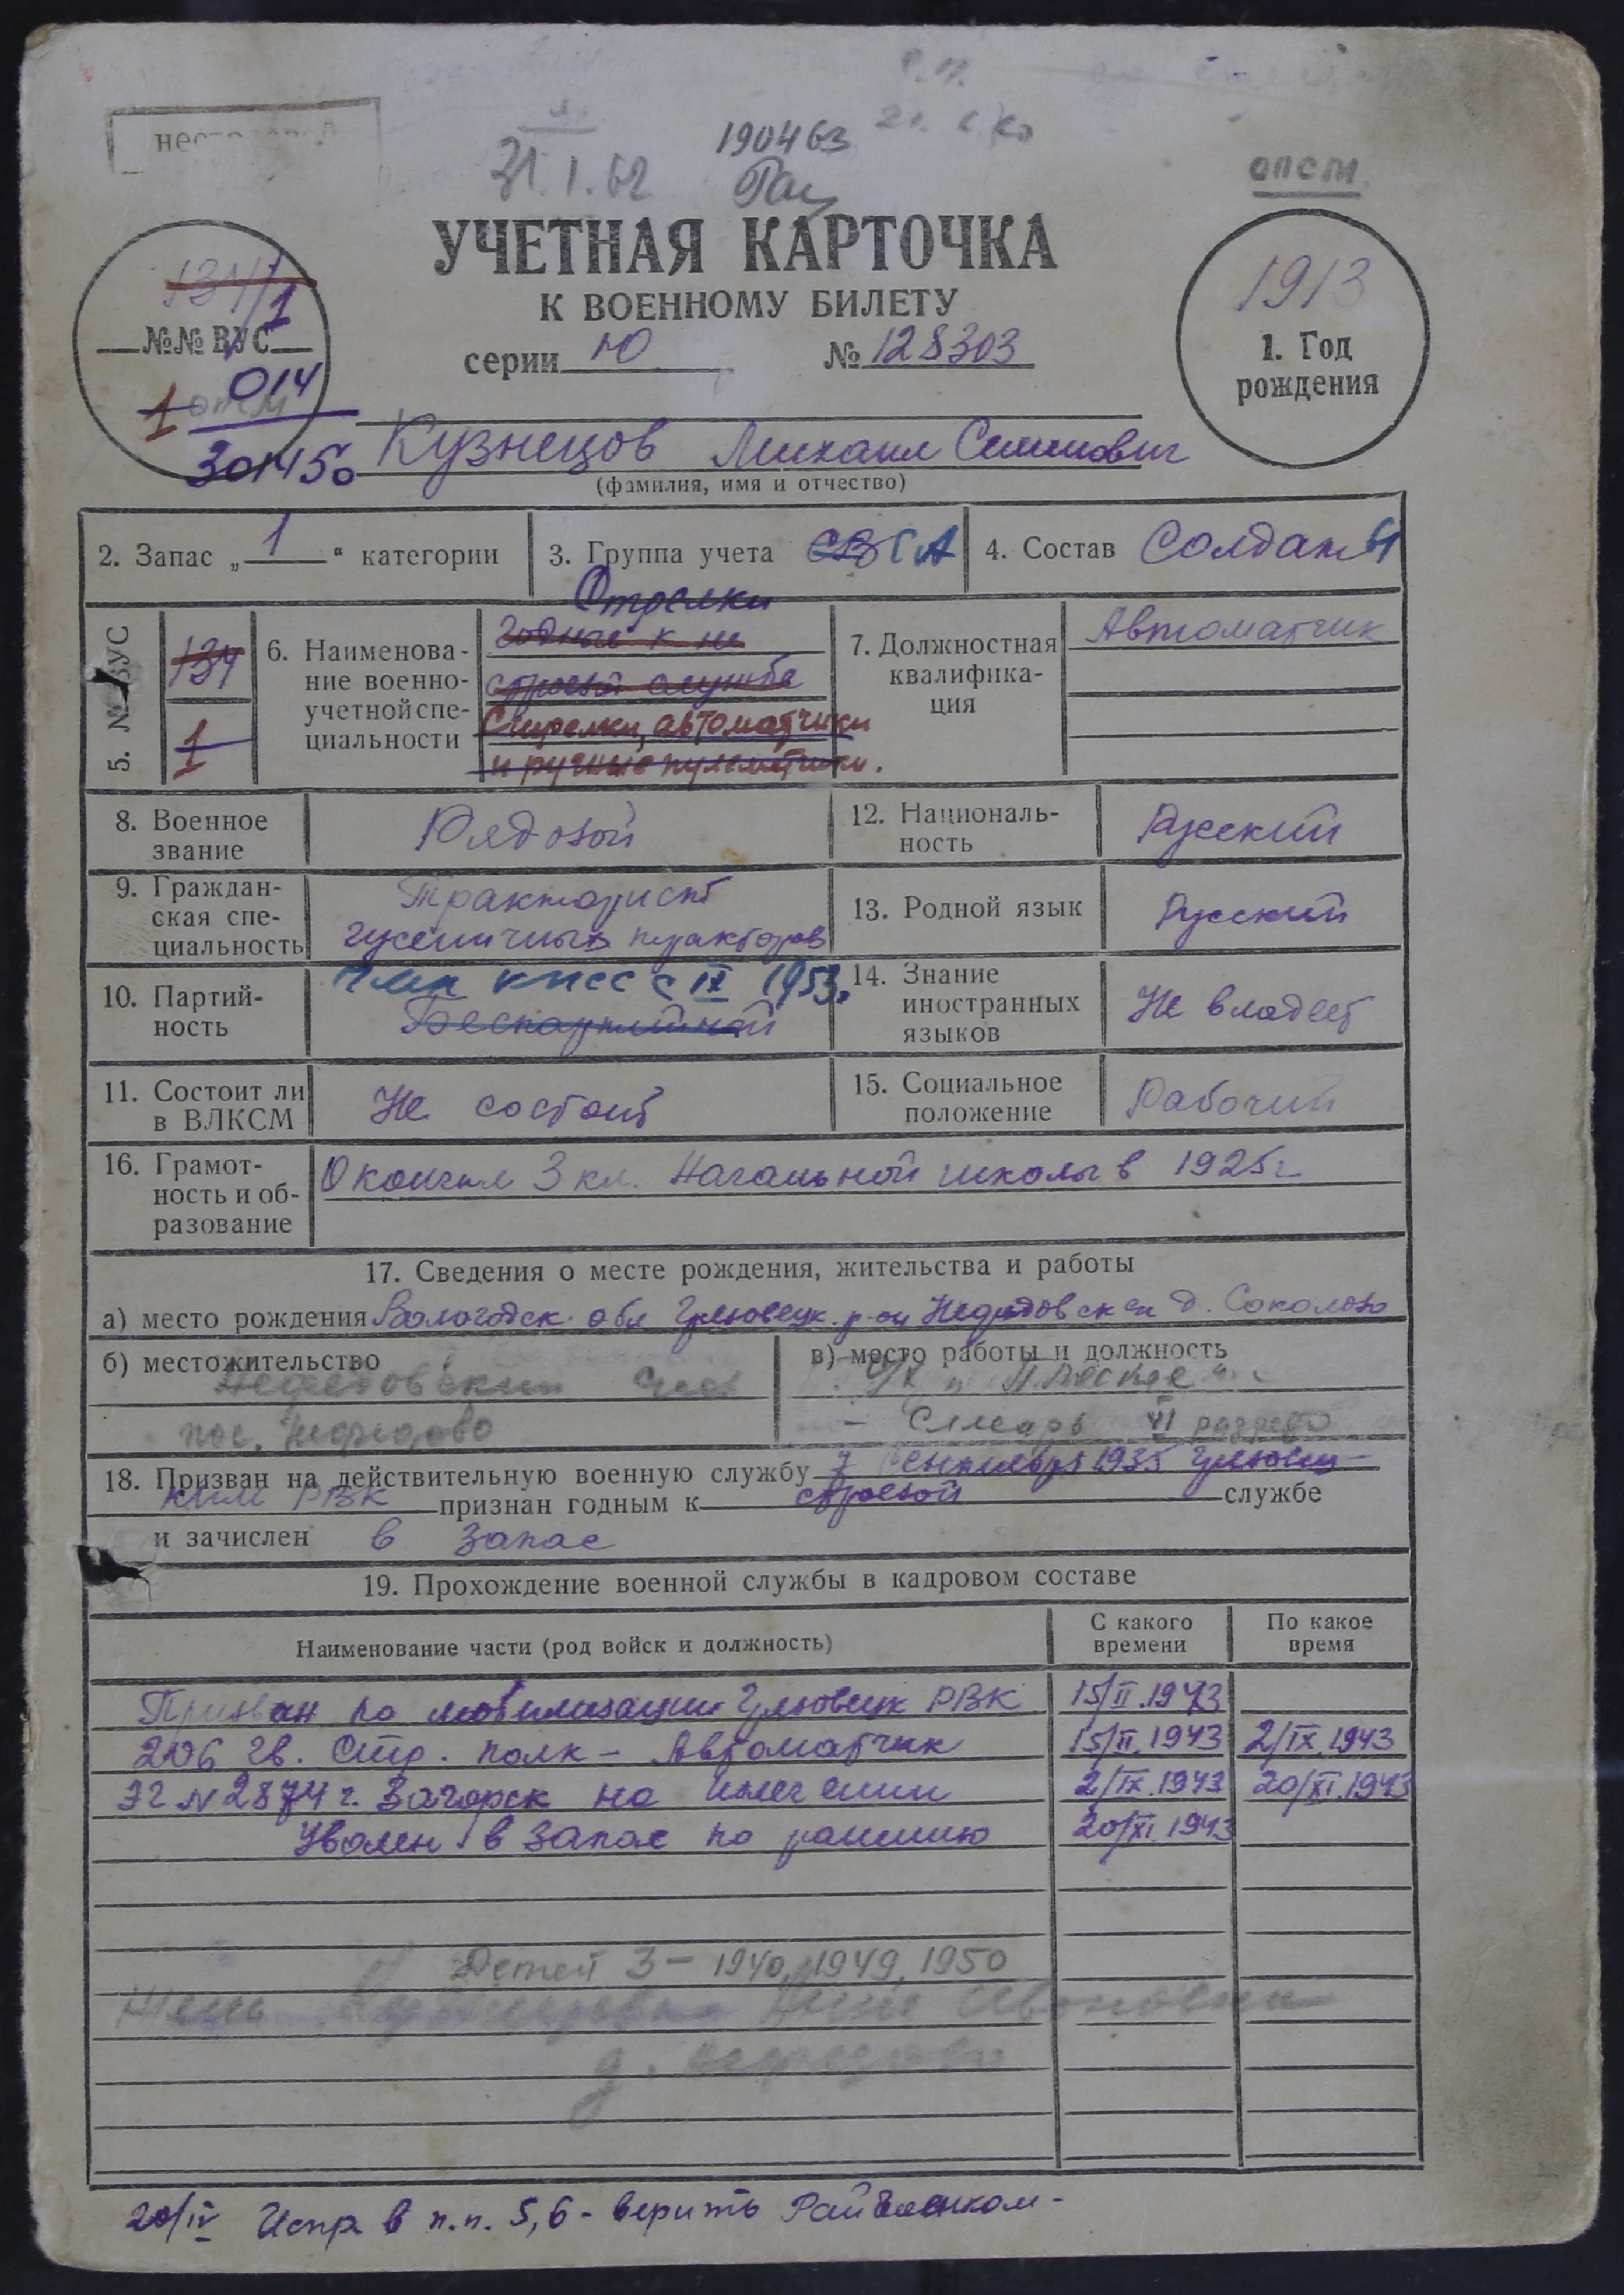 31.1.62
190463
опсм
УЧЕТНАЯ КАРТОЧКА
К ВОЕННОМУ БИЛЕТУ
серии Ю № 128303
134/1
1
№№ ВУС
014
1 опсм
30145о
1913
1. Год
рождения
Кузнецов Михаил Семенович
(фамилия, имя и отчество)
2. Запас „ 1 “ категории
3. Группа учета СВ СА
4. Состав Солдаты
5. № ВУС
134
1
6. Наименова-
ние военно-
учетной спе-
циальности
Стрелки
Годные к не
строевой службе
Стрелки, автоматчики
и ручные пулеметчики.
7. Должностная
квалифика-
ция
Автоматчик
8. Военное
звание
Рядовой
12. Националь-
ность
Русский
9. Граждан-
ская спе-
циальность
Тракторист
гусеничных тракторов
13. Родной язык
Русский
10. Партий-
ность
Член КПСС с IX 1953.
Беспартийный
14. Знание
иностранных
языков
Не владеет
11. Состоит ли
в ВЛКСМ
Не состоит
15. Социальное
положение
Рабочий
16. Грамот-
ность и об-
разование
Окончил 3 кл. Начальной школы в 1925г
17. Сведения о месте рождения, жительства и работы
а) место рождения Вологодск. обл Грязовецк. р-он д. Соколово
б) местожительство
Нефедовский
пос. Нефедово
в) место работы и должность
Слесарь VI разряда
18. Призван на действительную военную службу 7 Сентября 1935 Грязовец-
ким РВК признан годным к строевой службе
и зачислен в запас
19. Прохождение военной службы в кадровом составе
Наименование части (род войск и должность)
С какого
времени
По какое
время
Призван по мобилизации Грязовецк РВК 15/II.1943
206 гв. Стр. полк – Автоматчик 15/II.1943 2/IX.1943
ЭГ N 2874 г. Загорск на излечении 2/IX.1943 20/XI.1943
Уволен в запас по ранению 20/XI.1943
Детей 3 – 1940, 1949, 1950
Жена Ивановна
д. Нефедово
20/IV Испр. в п.п. 5,6 – верить Райвоенком –